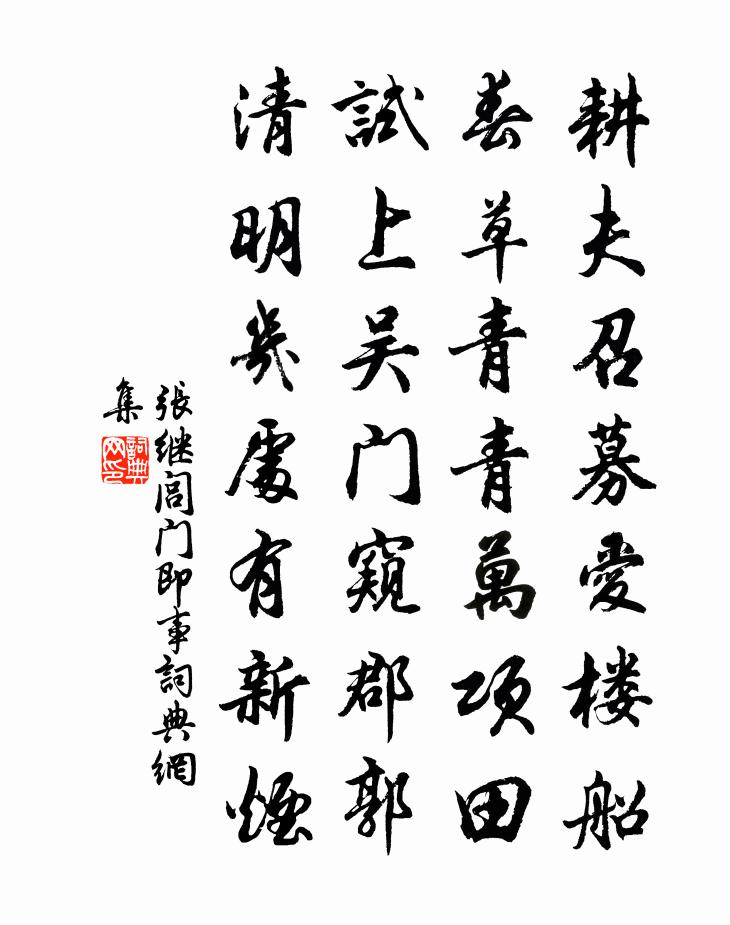 耕夫召募愛楼船
春草青青萬项田
試上吴门窺郡郭
清明幾處有新煙
張继阊门即事詞典網
集
詞典网印